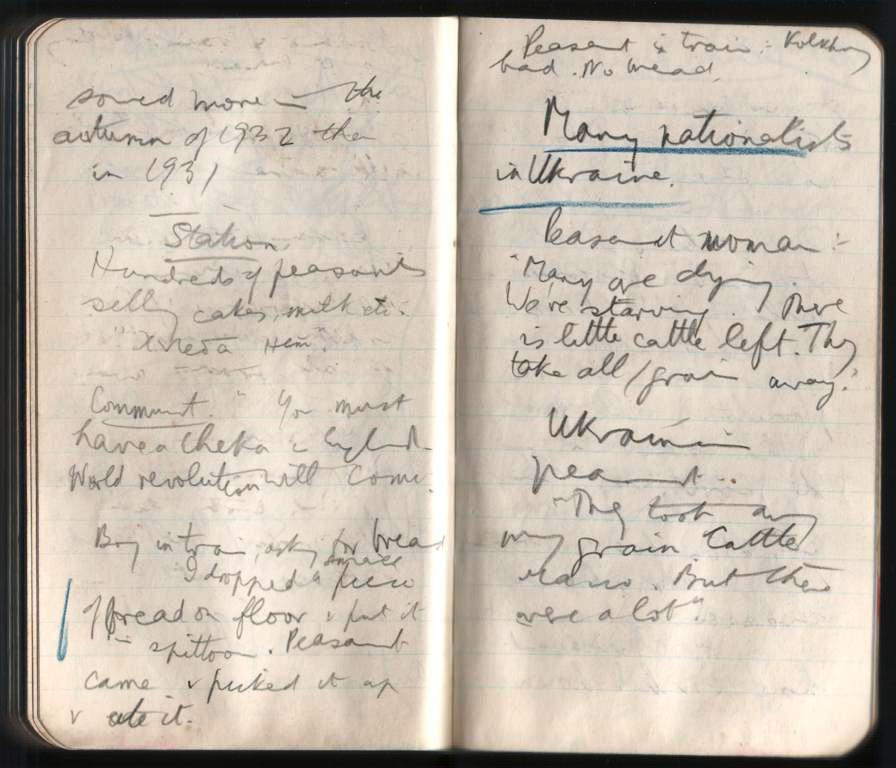 sowed more in the
autumn of 1932 than
in 1931
Station
Hundreds of peasants
selling cakes, milk etc.
"Хлеба нет".
Communist. "You must
have a Cheka in England
World revolution will come.
Boy in train asking for bread
I dropped a small piece
of bread on floor & put it
in spittoon. Peasant
came & picked it up
& ate it.
Peasant in train :- Kolkhoz
bad. No bread.
Many nationalists
in Ukraine.
Peasant woman :-
"Many are dying.
We're starving. There
is little cattle left. They
take all / grain away."
Ukrainian
peasant..
"They took away
my grain. Cattle
But there
were a lot".